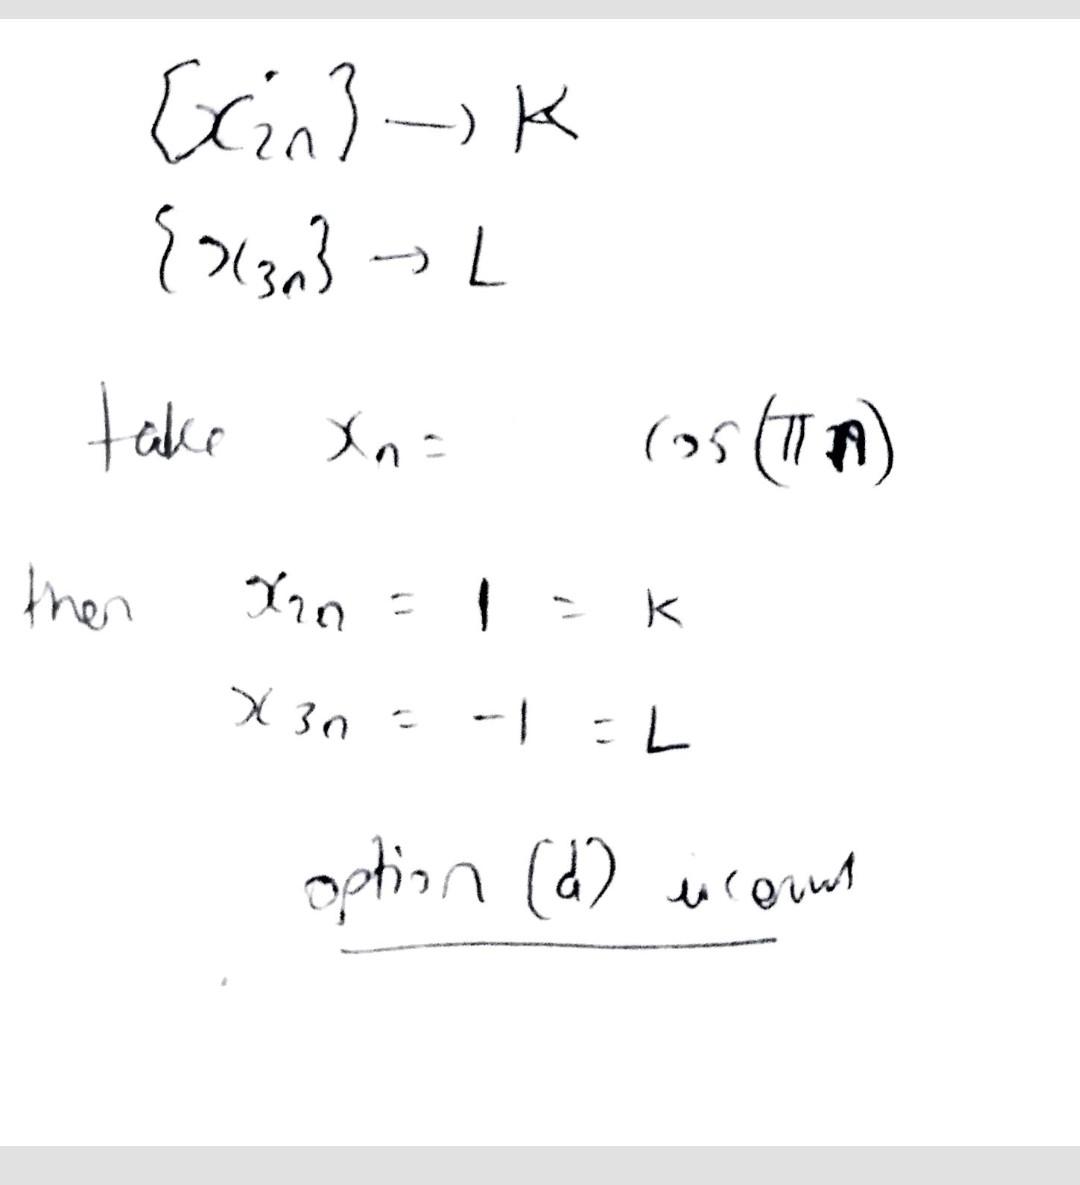 {x₂ₙ} → K
{x₃ₙ} → L
take xₙ = cos(πn)
then x₂ₙ = 1 = K
x₃ₙ = -1 = L
option (d)